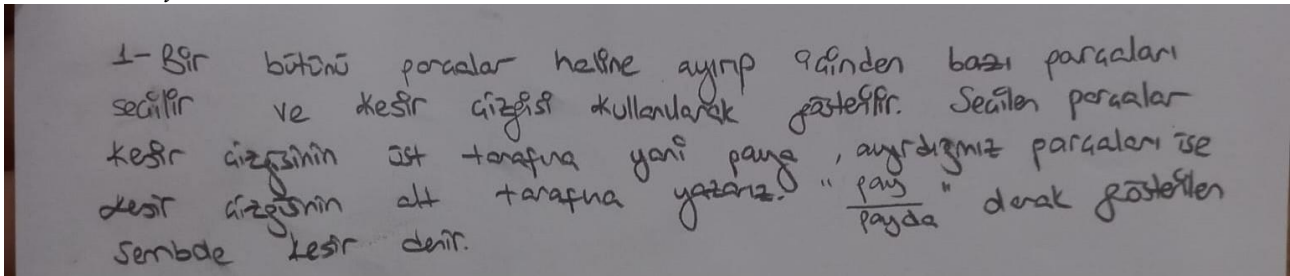 1- Bir bütünü parçalar haline ayırıp içinden bazı parçaları
seçilir ve kesir çizgisi kullanılarak gösterilir. Seçilen parçalar
kesir çizgisinin üst tarafına yani paya, ayırdığımız parçaları ise
kesir çizgisinin alt tarafına yazarız. " pay / payda " olarak gösterilen
sembole kesir denir.